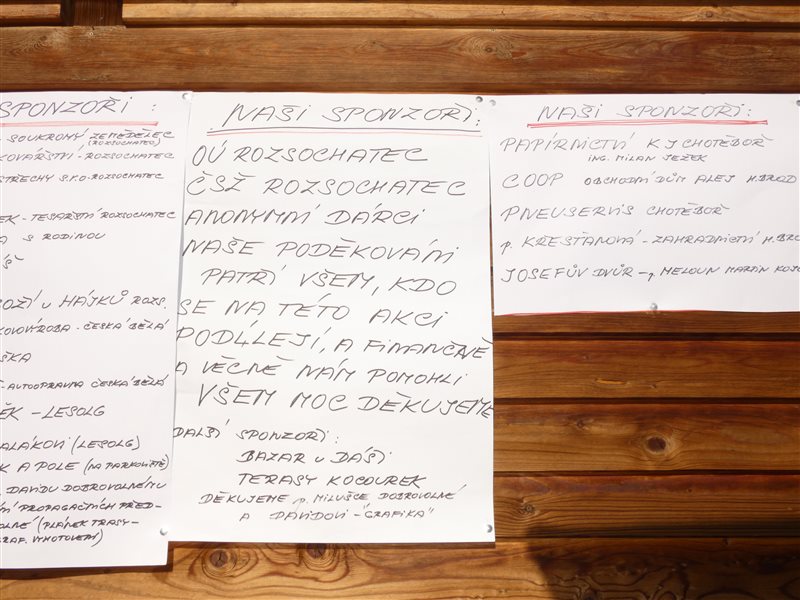 SPONZOŘI :
- SOUKROMÝ ZEMĚDĚLEC
(ROZSOCHATEC)
KOVÁŘSTVÍ - ROZSOCHATEC
STŘECHY S.R.O - ROZSOCHATEC
EK - TESAŘSTVÍ ROZSOCHATEC
A S RODINOU
U HÁJKŮ ROZS.
KOVOVÝROBA - ČESKÁ BĚLÁ
ŠKA
- AUTOOPRAVNA ČESKÁ BĚLÁ
ĚK - LESOLG
ALÁKOVI (LESOLG)
K A POLE (NA PARKOVIŠTĚ)
DAVIDU DOBROVOLNÉMU
NÍ PROPAGAČNÍCH PŘED-
OLNÉ (PLÁNEK TRASY-
GRAF. VYHOTOVENÍ)
NAŠI SPONZOŘI :
OÚ ROZSOCHATEC
ČSŽ ROZSOCHATEC
ANONYMNÍ DÁRCI
NAŠE PODĚKOVÁNÍ
PATŘÍ VŠEM, KDO
SE NA TÉTO AKCI
PODÍLEJÍ, A FINANČNĚ
A VĚCNĚ NÁM POMOHLI
VŠEM MOC DĚKUJEME
DALŠÍ SPONZOŘI :
BAZAR U DÁŠI
TERASY KOCOUREK
DĚKUJEME p. MILUŠCE DOBROVOLNÉ
A DAVIDOVI - "GRAFIKA"
NAŠI SPONZOŘI :
PAPÍRNICTVÍ KJ CHOTĚBOŘ
ING. MILAN JEŽEK
COOP OBCHODNÍ DŮM ALEJ H.BROD
PNEUSERVIS CHOTĚBOŘ
p. KŘESŤANOVÁ - ZAHRADNICTVÍ H.BRO
JOSEFŮV DVŮR - p. MELOUN MARTIN KOJE